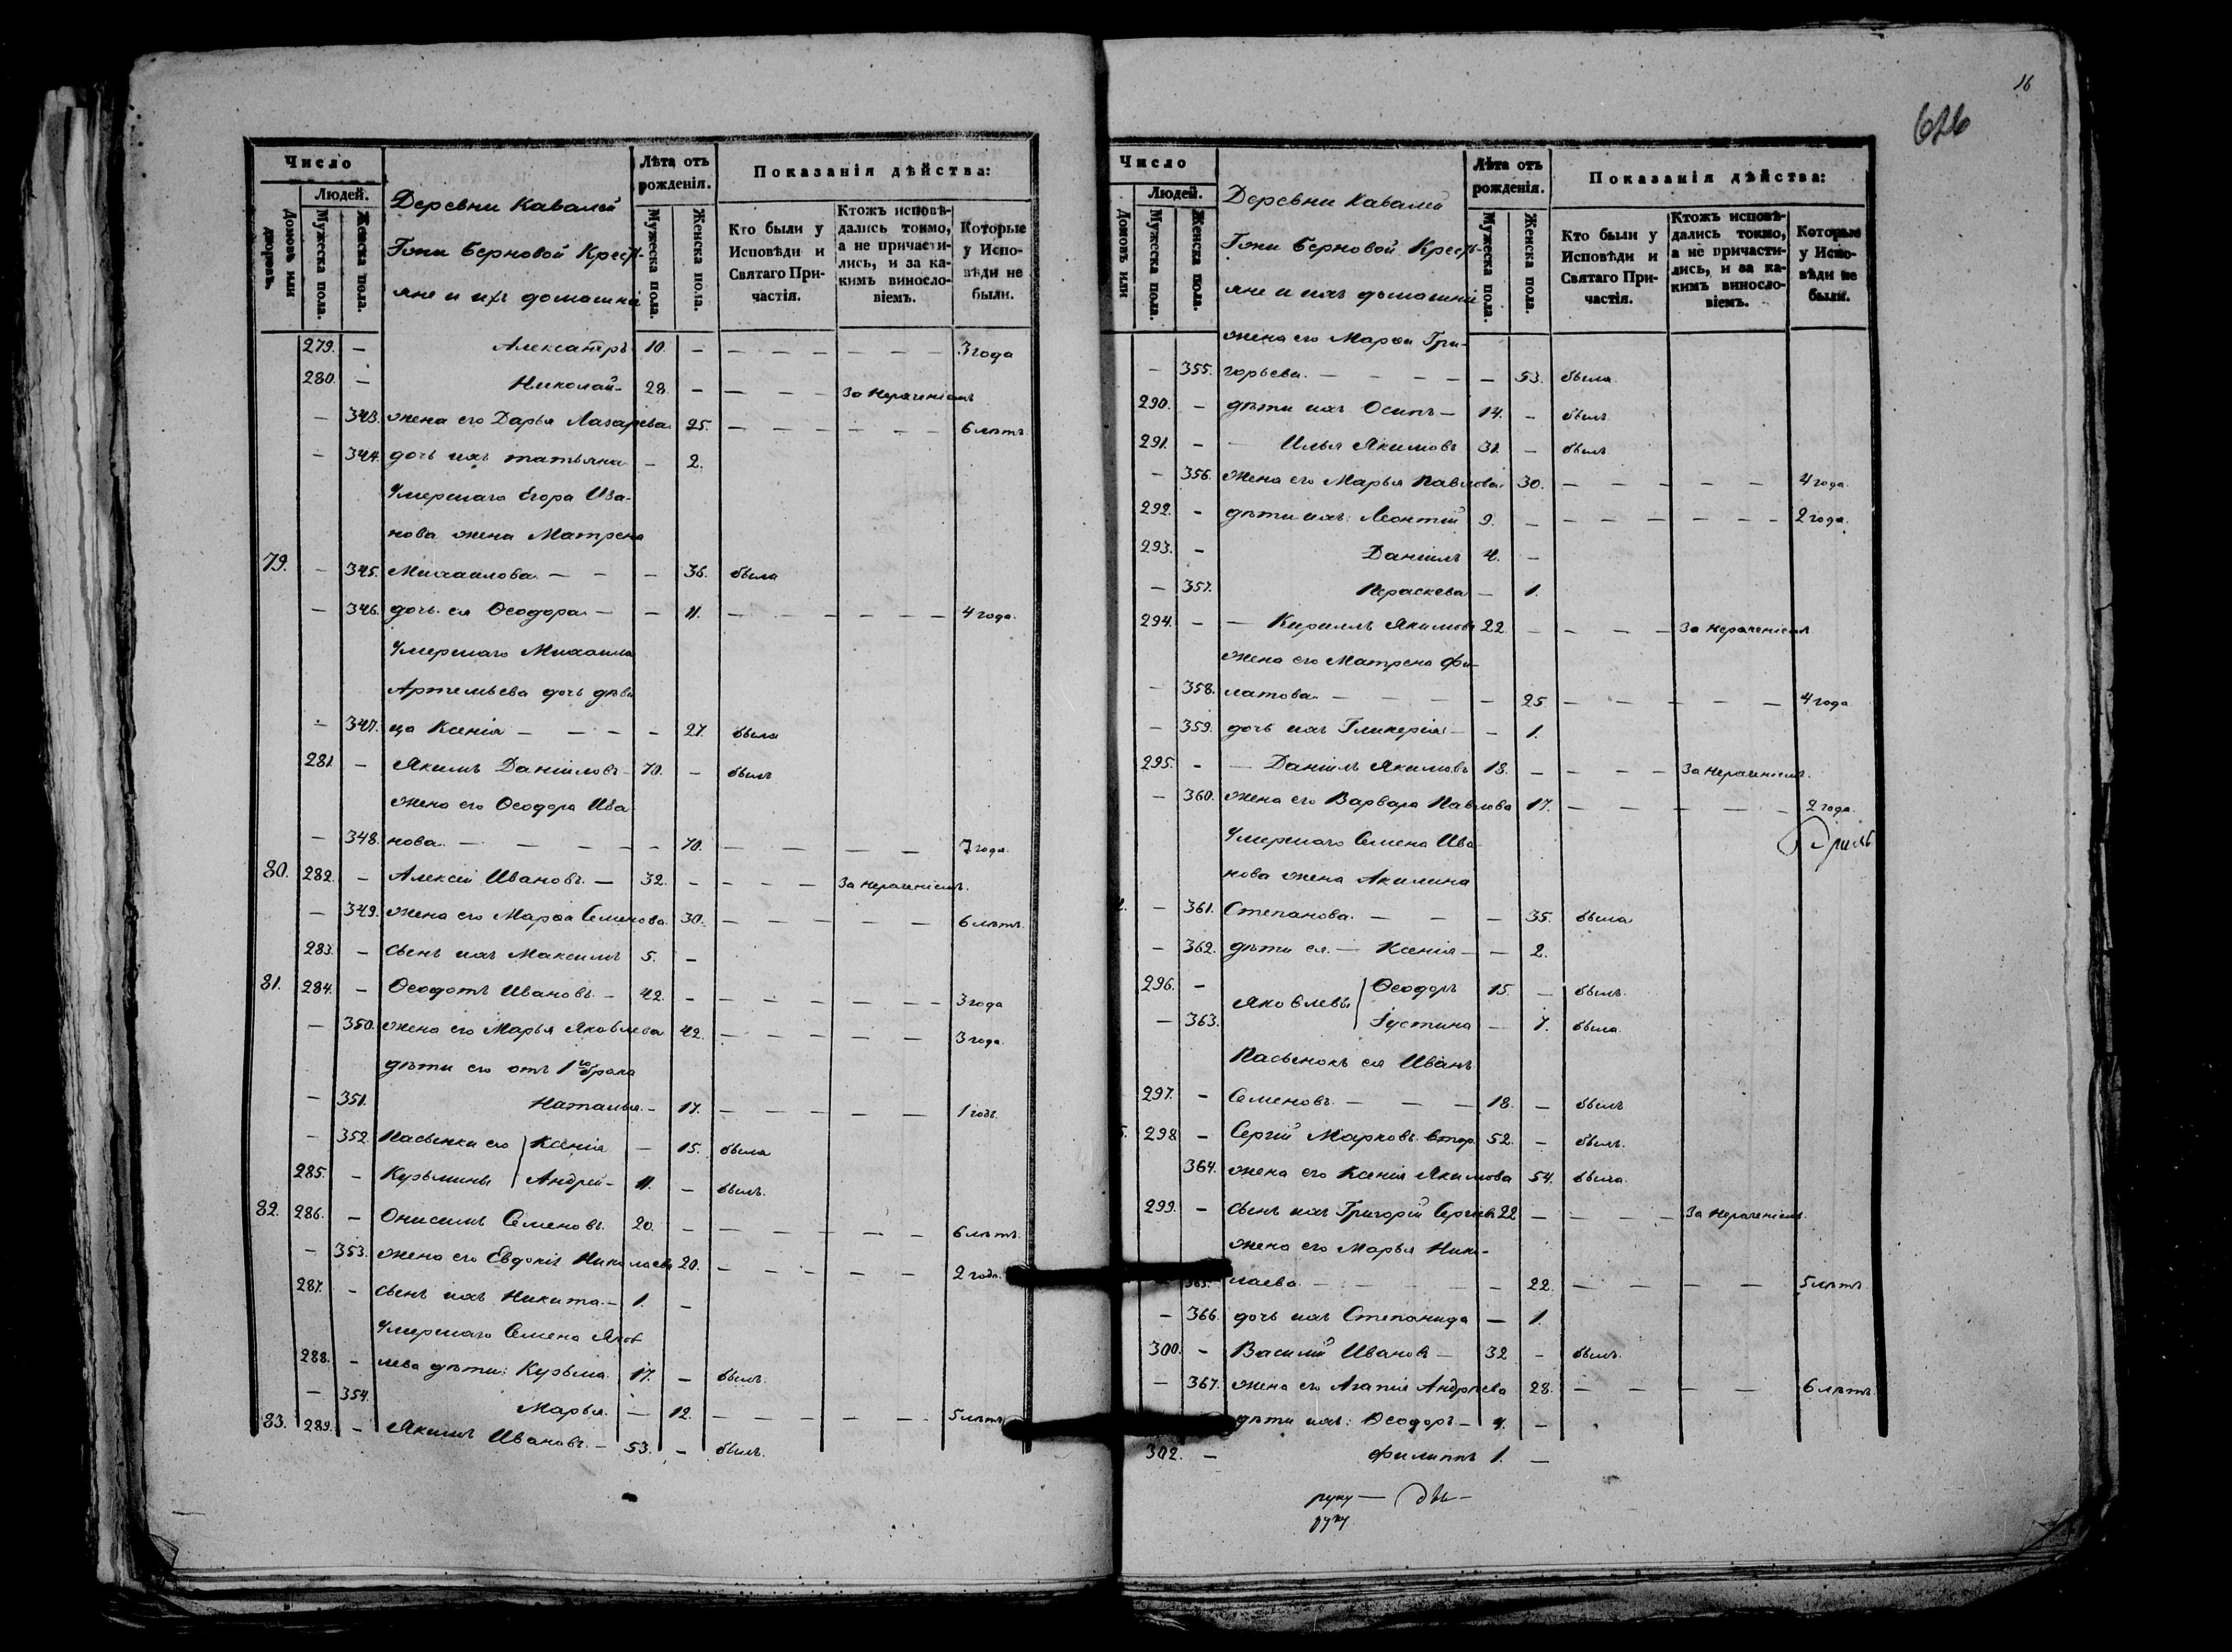 16
626
Число
Людей.
Домовъ или дворовъ.
Мужеска пола.
Женска пола.
Деревни Кавалей
Гжи Берновой Кресть-
яне и ихъ домашніе
Лѣта отъ рожденія.
Мужеска пола.
Женска пола.
Показанія дѣйства:
Кто были у Исповѣди и Святаго При-частія.
Ктожъ исповѣ-дались токмо, а не причасти-лись, и за ка-кимъ винословіемъ.
Которые у Испо-вѣди не были.
279. — Александръ 10. — — — — — — — 3 года
280. — Николай — 28. — — — — За нераченіемъ
— 343. жена его Дарья Лазарева 25. — — — — — — 6 лѣтъ.
— 344. дочь ихъ Татьяна — 2.
Умершаго Егора Ива-
нова жена Матрена
79. — 345. Михаилова — — — 36. была
— 346. дочь ея Ѳеодора — — 11. — — — — — — 4 года.
Умершаго Михаила
Артемьева дочь дѣви
— 347. ца Ксенія — — — — 27. была
281. — Якимъ Даніиловъ — 70. — былъ
жена его Ѳеодора Ива
— 348. нова — — — — — 70. — — — — — 7 года.
80. 282. — Алексѣй Ивановъ. — 32. — — — — За нераченіемъ.
— 349. жена его Марѳа Семенова. 30. — — — — — 6 лѣтъ.
283. — Сынъ ихъ Максимъ 5. —
81. 284. — Ѳеодотъ Ивановъ. — 42. — — — — — — — 3 года
— 350. жена его Марья Яковлева 42. — — — — — 3 года.
дѣти его отъ 1го брака
— 351. Наталья — 17. — — — — — 1 годъ.
— 352. Пасынки его Ксенія — 15. была
285. — Курьмины Андрей — 11. — былъ.
82. 286. — Онисимъ Семеновъ. 20. — — — — — — 6 лѣтъ.
— 353. жена его Евдокія Николаева 20. — — — — — — 2 года.
287. — Сынъ ихъ Никита. — 1. —
Умершаго Семена Яков
288. — лева дѣти: Курьма 17. — былъ.
— 354. Марья — 12. — — — — — — — 5 лѣтъ
83. 289. — Якимъ Ивановъ. — 53. — былъ.
Число
Людей.
Домовъ или
Мужеска пола.
Женска пола.
Деревни Кавалей
Гжи Берновой Кресть-
яне и ихъ домашніе
Лѣта отъ рожденія.
Мужеска пола.
Женска пола.
Показанія дѣйства:
Кто были у Исповѣди и Святаго При-частія.
Ктожъ исповѣ-дались токмо, а не причасти-лись, и за ка-кимъ винословіемъ.
Которые у Испо-вѣди не были.
жена его Марѳа Гри-
— 355. горьева. — — — — — 53. была.
290. — дѣти ихъ Осипъ — 14. — былъ
291. — — Илья Якимовъ 31. — былъ
— 356. жена его Марья Павлова 30. — — — — — 4 года.
292. — дѣти ихъ: Леонтій 9. — — — — — — — 2 года.
293. — Даніилъ 4. —
— 357. Параскева — 1.
294. — — Кириллъ Якимовъ 22. — — — — За нераченіемъ
жена его Матрена Фи-
— 358. латова — — — — — 25 — — — — — 4 года
— 359. дочь ихъ Гликерія — — 1.
295. — — Даніилъ Якимовъ 18. — — — — За нераченіемъ.
— 360. жена его Варвара Павлова 17. — — — — — 2 года.
Умершаго Семена Ива-
нова жена Акилина
— 361. Степанова. — — — 35. была
— 362. дѣти ея. — Ксенія — — 2.
296. — Яковлевы Ѳеодоръ 15. — былъ.
— 363. Іустина — 7. была.
Пасынокъ ея Иванъ
297. — Семеновъ. — — — 18. — былъ
298 — Сергій Марковъ. Втор. 52. — былъ.
364. жена его Ксенія Якимова 54. была.
299. — Сынъ ихъ Григорій Сергѣевъ 22 — — — — За нераченіемъ.
жена его Марья Нико-
365. лаева. — — — — — 22. — — — — 5 лѣтъ.
— 366. дочь ихъ Степанида — 1.
300. — Василій Ивановъ — 32 — былъ.
— 367. жена его Агапія Андрѣева 28. — — — — 6 лѣтъ.
дѣти ихъ: Ѳеодоръ — 4. —
302. — Филиппъ 1. —
руку —
руку